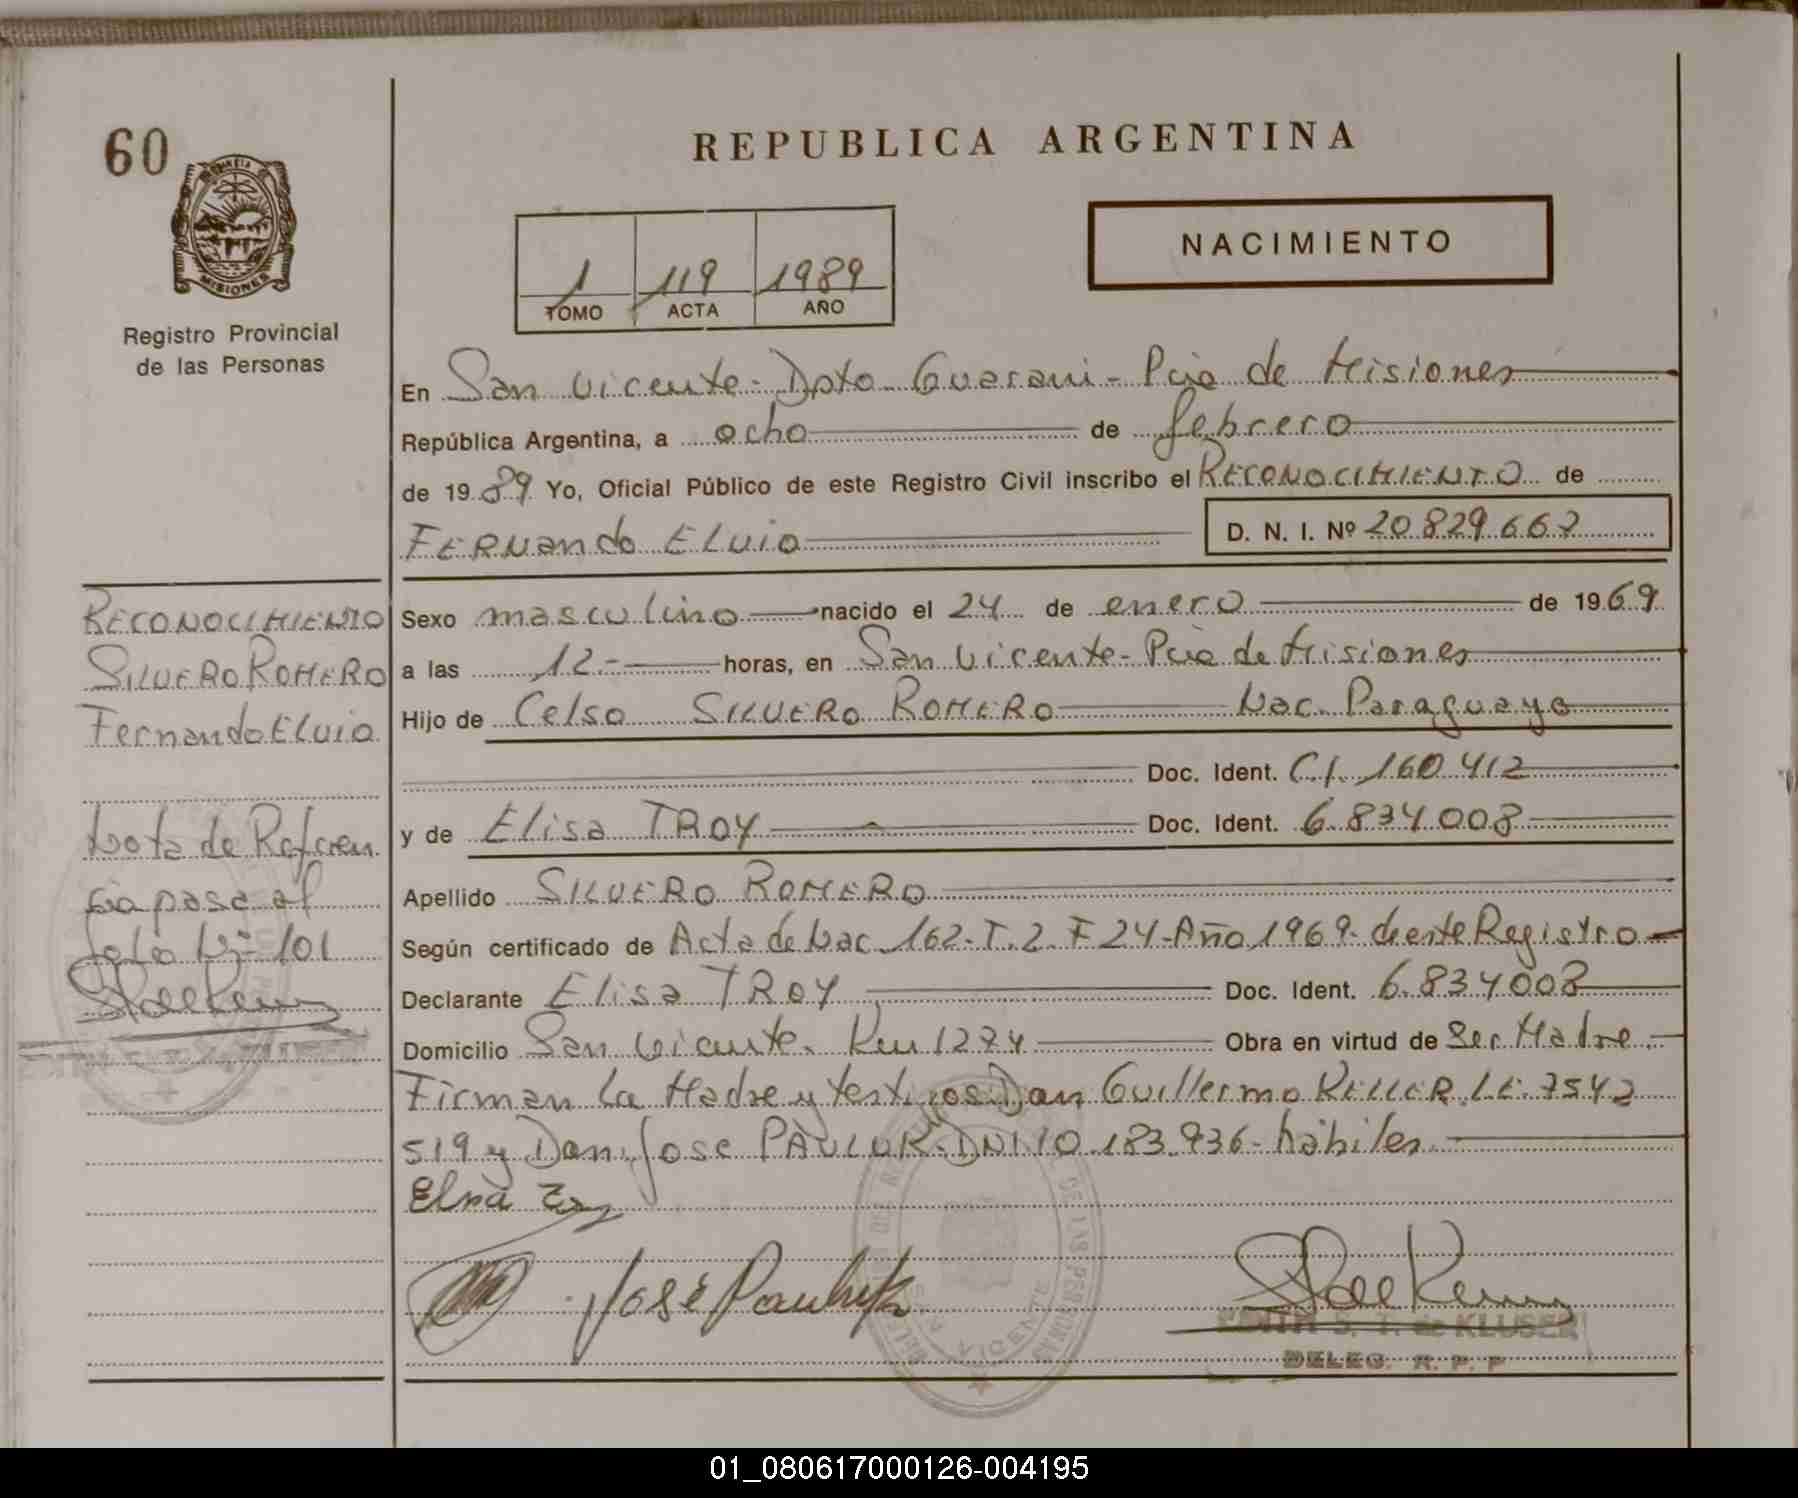 60
REPUBLICA ARGENTINA
NACIMIENTO
1 119 1989
TOMO ACTA AÑO
MISIONES
Registro Provincial
de las Personas
En San Vicente - Dpto Guarani - Pcia de Misiones
República Argentina, a ocho de febrero
de 1989 Yo, Oficial Público de este Registro Civil inscribo el RECONOCIMIENTO de
FERNando ELVIO D. N. I. Nº 20.829.667
RECONOCIMIENTO
SILVERO ROMERO
Fernando Elvio
Nota de Referen
cia pasa al
folio Nº 101
Sexo masculino nacido el 24 de enero de 1969
a las 12.- horas, en San Vicente - Pcia de Misiones
Hijo de Celso SILVERO ROMERO Nac. Paraguayo
Doc. Ident. C.I. 160.412
y de Elisa TROY Doc. Ident. 6.834.008
Apellido SILVERO ROMERO
Según certificado de Acta de Nac. 162 - T. 2. F 24 - Año 1969 - de este Registro
Declarante Elisa TROY Doc. Ident. 6.834.008
Domicilio San Vicente. Km 1274 Obra en virtud de Ser Madre.
Firman La Madre y testigos: Don Guillermo KELLER. L.E. 7542
519 y Don Jose PAULUK. DNI 10.183.936 - hábiles.
José Pauluk
EDITH S. T. de KLUSER
DELEG. R. P. P
SAN VICENTE
01_080617000126-004195